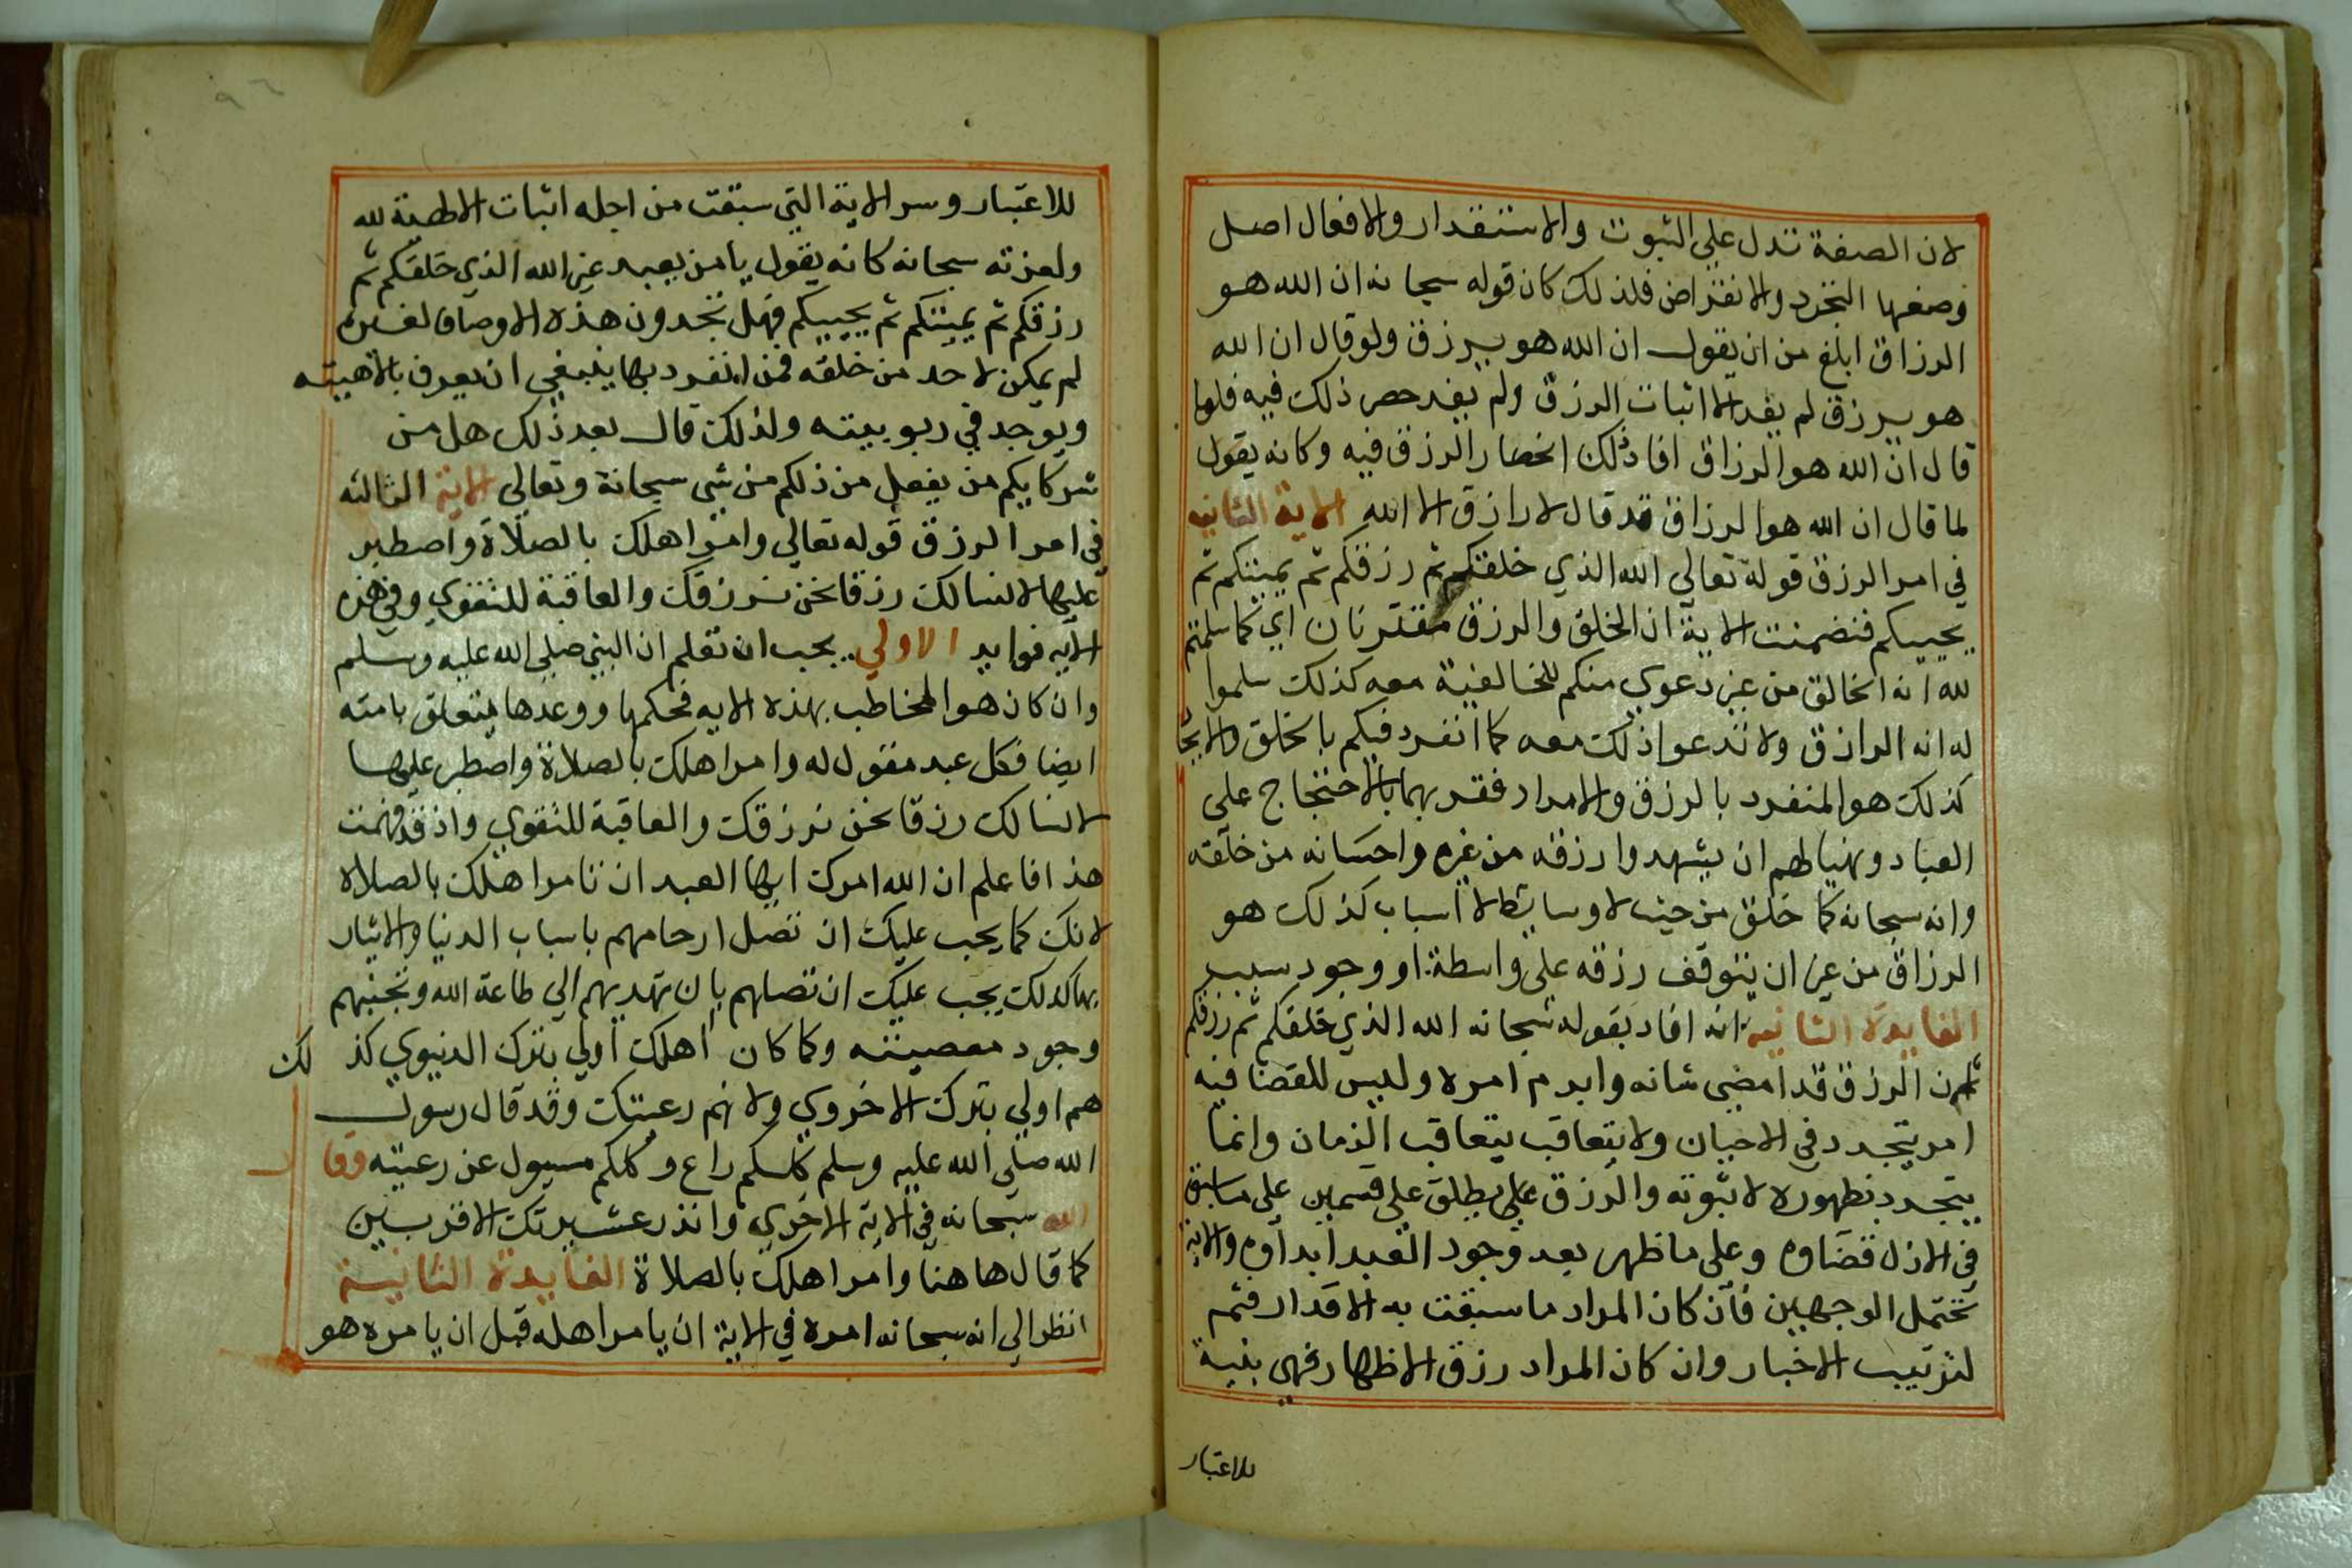 لان الصفة تدل علي الثبوت والاستقدار والافعال اصل
وصفها التجرد والانقراض فلذلك كان قوله سبحانه ان الله هو
الرزاق ابلغ من ان يقول ان الله هو يرزق ولو قال ان الله
هو يرزق لم يفد الا اثبات الرزق ولم يفد حصر ذلك فيه فلما
قال ان الله هو الرزاق افاد ذلك انحصار الرزق فيه وكانه يقول
لما قال ان الله هو الرزاق قد قال لا رازق الا الله الاية الثانيه
في امر الرزق قوله تعالي الله الذي خلقكم ثم رزقكم ثم يميتكم ثم
يحييكم فتضمنت الاية ان الخلق والرزق مقترنان اي كما سلمتم
لله انه الخالق من غير دعوي منكم للخالقية معه كذلك سلموا
له انه الرازق ولا تدعوا ذلك معه كما انفرد فيكم بالخلق والايجا
كذلك هو المنفرد بالرزق والامداد فقر بهما بالاحتجاج علي
العباد ونهيا لهم ان يشهدوا رزقه من غيره واحسانه من خلقه
وانه سبحانه كما خلق من حيث لا وسايط لا اسباب كذلك هو
الرزاق من غير ان يتوقف رزقه علي واسطة او وجود سبب
الفايدة الثانيه انه افاد بقوله سبحانه الله الذي خلقكم ثم رزقكم
ان الرزق قد امضي شانه وابرم امره وليس للقضا فيه
امر يتجدد في الاحيان ولا يتعاقب بتعاقب الزمان وانما
يتجدد بظهوره لا ثبوته والرزق يطلق علي قسمين علي ما سبق
في الازل قضاوه وعلي ما ظهر بعد وجود العبد ابداوه والاية
تحتمل الوجهين فان كان المراد ما سبقت به الاقدار فثم
لترتيب الاخبار وان كان المراد رزق الاظهار فهي بنية
للاعتبار
للاعتبار وسر الاية التي سبقت من اجله اثبات الالهية لله
ولعزته سبحانه كانه يقول يا من يعبد غير الله الذي خلقكم ثم
رزقكم ثم يميتكم ثم يحييكم فهل تجدون هذه الاوصاف لغيره
لم يمكن لاحد من خلقه فمن انفرد بها ينبغي ان يعرف بالاهيته
ويوحد في ربوبيته ولذلك قال بعد ذلك هل من
شركايكم من يفعل من ذلكم من شي سبحانة وتعالي الاية الثالثه
في امر الرزق قوله تعالي وامر اهلك بالصلاة واصطبر
عليها لا نسالك رزقا نحن نرزقك والعاقبة للتقوي وفي هذه
الايه فوايد الاولي يجب ان تعلم ان النبي صلي الله عليه وسلم
وان كان هو المخاطب بهذه الايه فحكمها ووعدها متعلق بامته
ايضا فكل عبد مقول له وامر اهلك بالصلاة واصطبر عليها
لا نسالك رزقا نحن نرزقك والعاقبة للتقوي واذ قد فهمت
هذا فاعلم ان الله امرك ايها العبد ان تامر اهلك بالصلاه
لانك كما يجب عليك ان تصل ارحامهم باسباب الدنيا والايثار
بها كذلك يجب عليك ان تصلهم بان تهديهم الي طاعة الله وتجنبهم
وجود معصيته وكما كان اهلك اولي بترك الدنيوي كذلك
هم اولي بترك الاخروي ولانهم رعيتك وقد قال رسول
الله صلي الله عليه وسلم كلكم راع وكلكم مسيول عن رعيته وقال
الله سبحانه في الاية الاخري وانذر عشيرتك الاقربين
كما قال هاهنا وامر اهلك بالصلاة الفايدة الثانية
انظر الي انه سبحانه امره في الاية ان يامر اهله قبل ان يامره هو